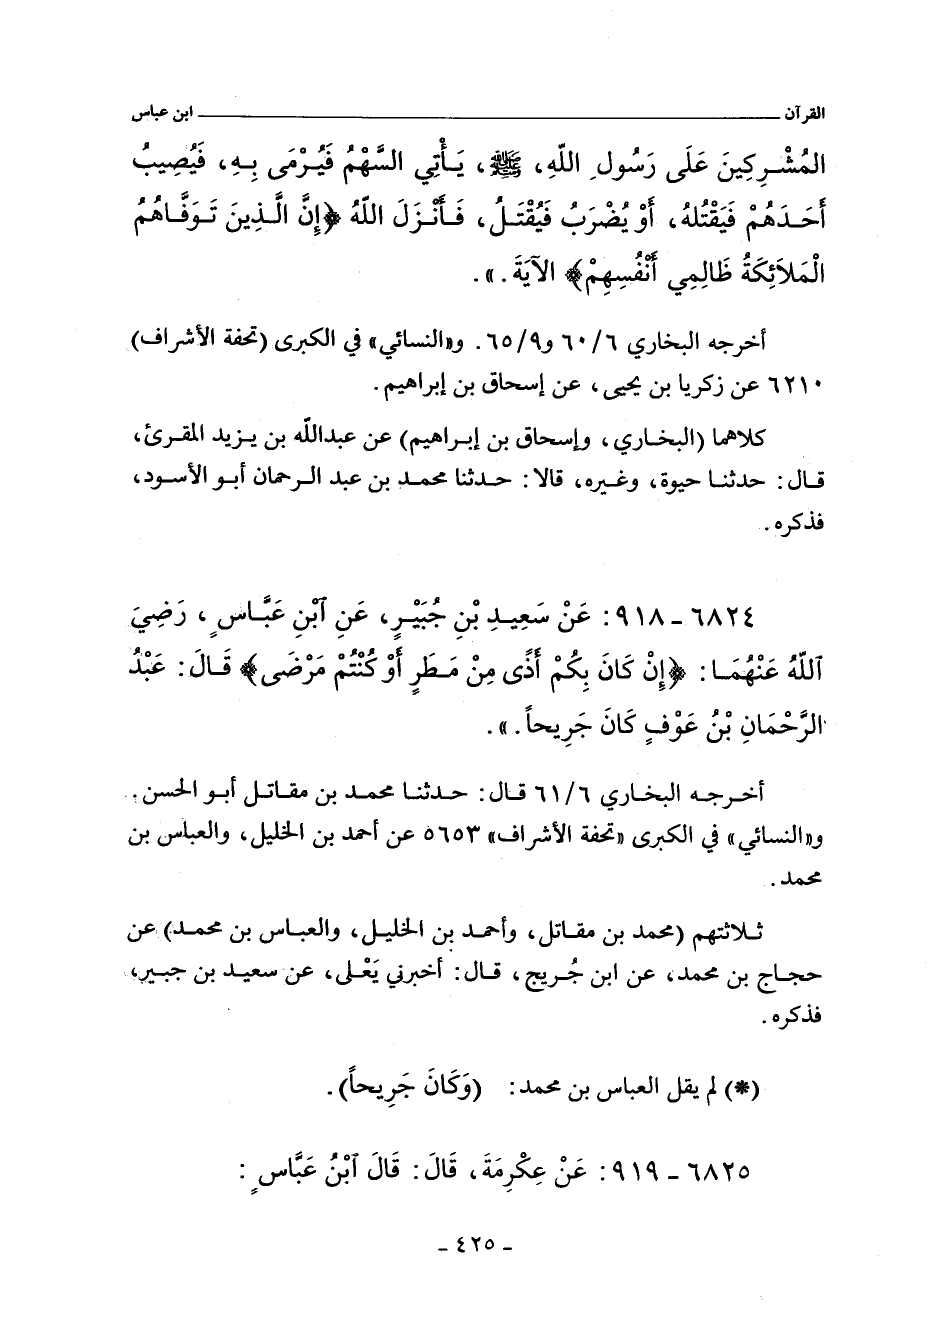 القرآن ــــــــــــــــــــ ابن عباس
المُشْرِكِينَ عَلَى رَسُولِ اللهِ، ﷺ، يَأْتِي السَّهْمُ فَيُرْمَى بِهِ، فَيُصِيبُ
أَحَدَهُمْ فَيَقْتُلهُ، أَوْ يُضْرَبُ فَيُقْتَلُ، فَأَنْزَلَ اللهُ ﴿إِنَّ الَّذِينَ تَوَفَّاهُمُ
الْمَلاَئِكَةُ ظَالِمِي أَنْفُسِهِمْ﴾ الآيَةَ.».
أخرجه البخاري ٦/ ٦٠ و٩/ ٦٥. و«النسائي» في الكبرى (تحفة الأشراف)
٦٢١٠ عن زكريا بن يحيى، عن إسحاق بن إبراهيم.
كلاهما (البخاري، وإسحاق بن إبراهيم) عن عبدالله بن يزيد المقرئ،
قال: حدثنا حيوة، وغيره، قالا: حدثنا محمد بن عبد الرحمان أبو الأسود،
فذكره.
٦٨٢٤ - ٩١٨: عَنْ سَعِيدِ بْنِ جُبَيْرٍ، عَنِ ٱبْنِ عَبَّاسٍ، رَضِيَ
ٱللهُ عَنْهُمَا: ﴿إِنْ كَانَ بِكُمْ أَذًى مِنْ مَطَرٍ أَوْ كُنْتُمْ مَرْضَى﴾ قَالَ: عَبْدُ
الرَّحْمَانِ بْنُ عَوْفٍ كَانَ جَرِيحاً.».
أخرجه البخاري ٦/ ٦١ قال: حدثنا محمد بن مقاتل أبو الحسن.
و«النسائي» في الكبرى «تحفة الأشراف» ٥٦٥٣ عن أحمد بن الخليل، والعباس بن
محمد.
ثلاثتهم (محمد بن مقاتل، وأحمد بن الخليل، والعباس بن محمد) عن
حجاج بن محمد، عن ابن جُريج، قال: أخبرني يَعْلى، عن سعيد بن جبير،
فذكره.
(*) لم يقل العباس بن محمد: (وَكَانَ جَرِيحاً).
٦٨٢٥ - ٩١٩: عَنْ عِكْرِمَةَ، قَالَ: قَالَ ٱبْنُ عَبَّاسٍ:
- ٤٢٥ -